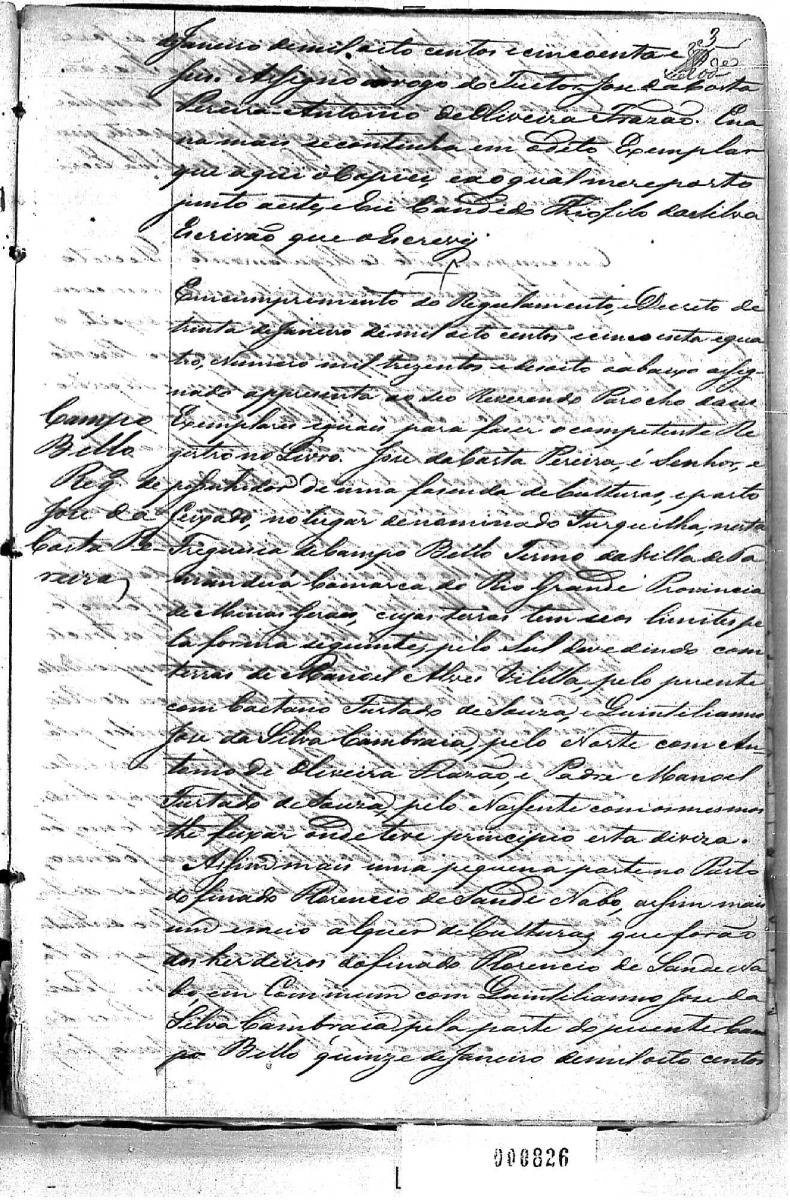 3
de Janeiro de mil oito centos e cincoenta e
seis Assigno arogo do Tuctor Jose da Costa
Pereira Antonio de Oliveira Frazão. E na
na mais se continha em o dito Exemplar
que aqui o Copiei, e ao qual me reporto
junto a este, e Eu Candido Theofilo da Silva
Escrivão que o Escrevy
Em cumprimento do Regulamento, e Decreto de
trinta de Janeiro de mil oito centos e cincoenta e qua
tro, Numero mil trezentos e desoito o abaixo assig
nado appresenta ao seo Reverendo Parocho dous
Exemplares eguais para fazer o competente Re
gistro no Livro. Jose da Costa Pereira, é Senhor, e
possuhidor de uma fasenda de Culturas, e parto
Ceixado, no lugar denominado Furquilha, nesta
Freguesia de Campo Bello Termo da Villa de Ta
manduá Comarca do Rio Grande Provincia
de Minas Geraes, cujas terras tem seos limites pe
la forma seguinte, pelo Sul devedindo com
terras de Manoel Alves Vilella, pelo puente
com Caetano Furtado de Souza, e Quintilianno
Jose da Silva Cambraia, pelo Norte com An
tonio de Oliveira Frazão, e Padre Manoel
Furtado de Souza, pelo Nassente com os mesmos
the fexar onde teve principio esta diviza.
Assim mais uma pequena parte no Pasto
do finado Florencio de Sande Nabo, assim mais
um meio alquer de Culturas que forão
dos herdeiros do finado Florencio de Sande Na
bo, em Commum com Quintilianno Jose da
Silva Cambraia pela parte do puente Cam
po Bello quinze de Janeiro de mil oito centos
Campo
Bello
Reg. de
Jose da
Costa Pe-
reira
000826